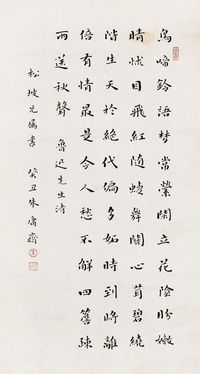 鳥啼鈴語夢常縈閒立花陰盼嫩
晴怵目飛紅隨蝶舞關心茸碧繞
階生天於絕代偏多妬時到將離
倍有情最是令人愁不解四簷疎
雨送秋聲 魯迅先生詩
松坡兄屬書 癸丑朱庸齋